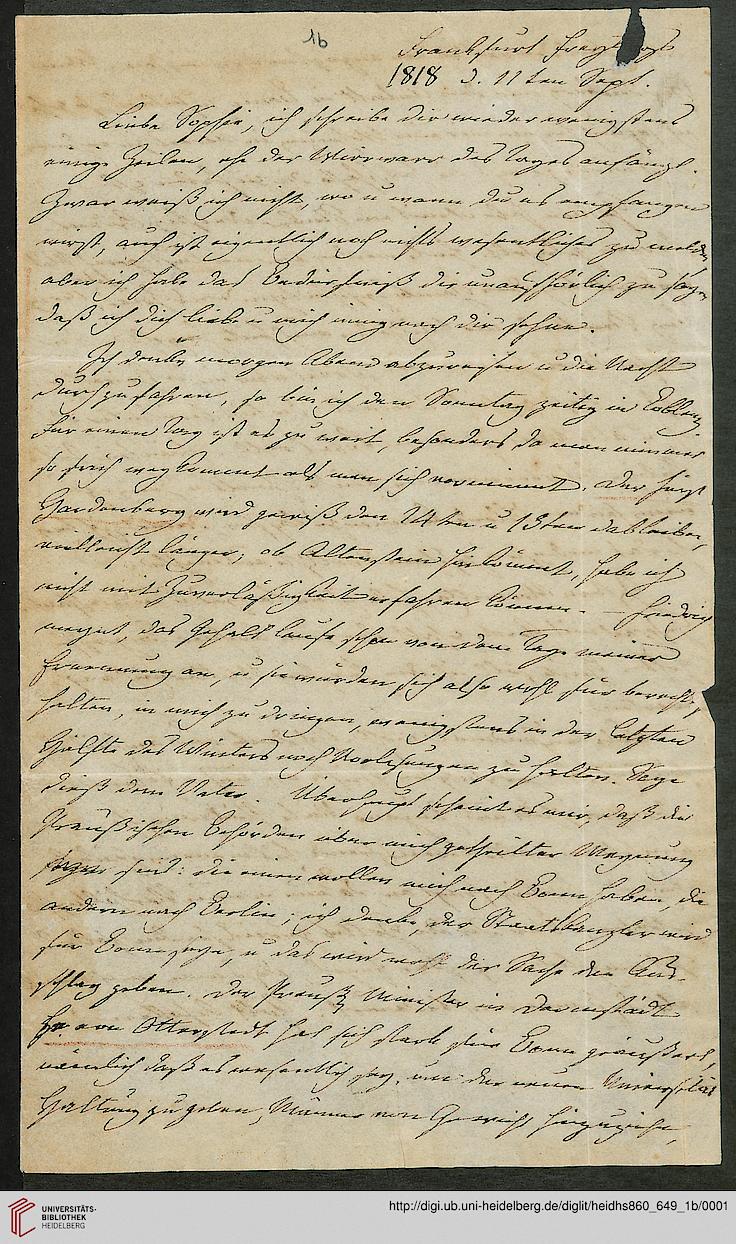 1b
Frankfurt Freytags
1818 d. 11ten Sept.
Liebe Sophie, ich schreibe dir wieder wenigstens
einige Zeilen, ehe der Wirrwarr des Tages anfängt.
Zwar weiß ich nicht, wo u wann du es empfangen
wirst, auch ist eigentlich noch nichts wesentliches zu melden,
aber ich habe das Bedürfniß dir unaufhörlich zu sagen
daß ich dich liebe u mich innig nach dir sehne.
Ich denke morgen Abend abzureisen u die Nacht
durchzufahren, so bin ich den Sonntag zeitig in Coblenz
Für einen Tag ist es zu weit, besonders da man nimmer
so früh wegkommt als man sich vornimmt. Der Fürst
Hardenberg wird gewiß den 14ten u 15ten dableiben,
vielleicht länger; ob Altenstein hinkömmt, habe ich
nicht mit Zuverläßigkeit erfahren können. — Friedrich
meynt, das Gehalt laufe schon von dem Tage meiner
Ernennung an, u sie würden sich also wohl für berechtigt
halten, in mich zu dringen, wenigstens in der letzten
Hälfte des Winters noch Vorlesungen zu halten. Sage
dieß dem Vater. Überhaupt scheint es mir, daß die
Preußischen Behörden über mich getheilter Meynung
sind: die einen wollen mich nach Bonn haben, die
andern nach Berlin; ich denke, der Staatskanzler wird
für Bonn seyn, u das wird wohl der Sache den Aus-
schlag geben. Der Preuß. Minister in Darmstadt
Hr. von Otterstedt hat sich stark für Bonn geäußert,
nämlich daß es wesentlich sey, um der neuen Universität
Haltung zu geben, Männer von Gewicht hinzuziehn,
UNIVERSITÄTS-
BIBLIOTHEK
HEIDELBERG
http://digi.ub.uni-heidelberg.de/diglit/heidhs860_649_1b/0001